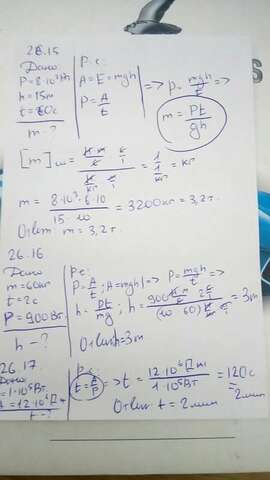 26.15
Дано:
P=8·10³Вт
h=15м
t=60с
m-?
Р-е:
A=E=mgh
P=A/t
=> P=mgh/t =>
m=Pt/gh
m = 8·10³·6·10/15·10 = 3200кг = 3,2т.
Ответ m = 3,2т.
26.16
Дано
m=60кг
t=2с
P=900Вт.
h-?
Р-е:
P=A/t; A=mgh => P=mgh/t =>
h=Pt/mg; h= = 3м
Ответ h=3м
26.17
Дано:
=1·10⁵Вт
A=12·10⁶Дж
t-?
Р-е:
t=A/P => t = 12·10⁶Дж/1·10⁵Вт = 120с
= 2мин
Ответ t = 2мин